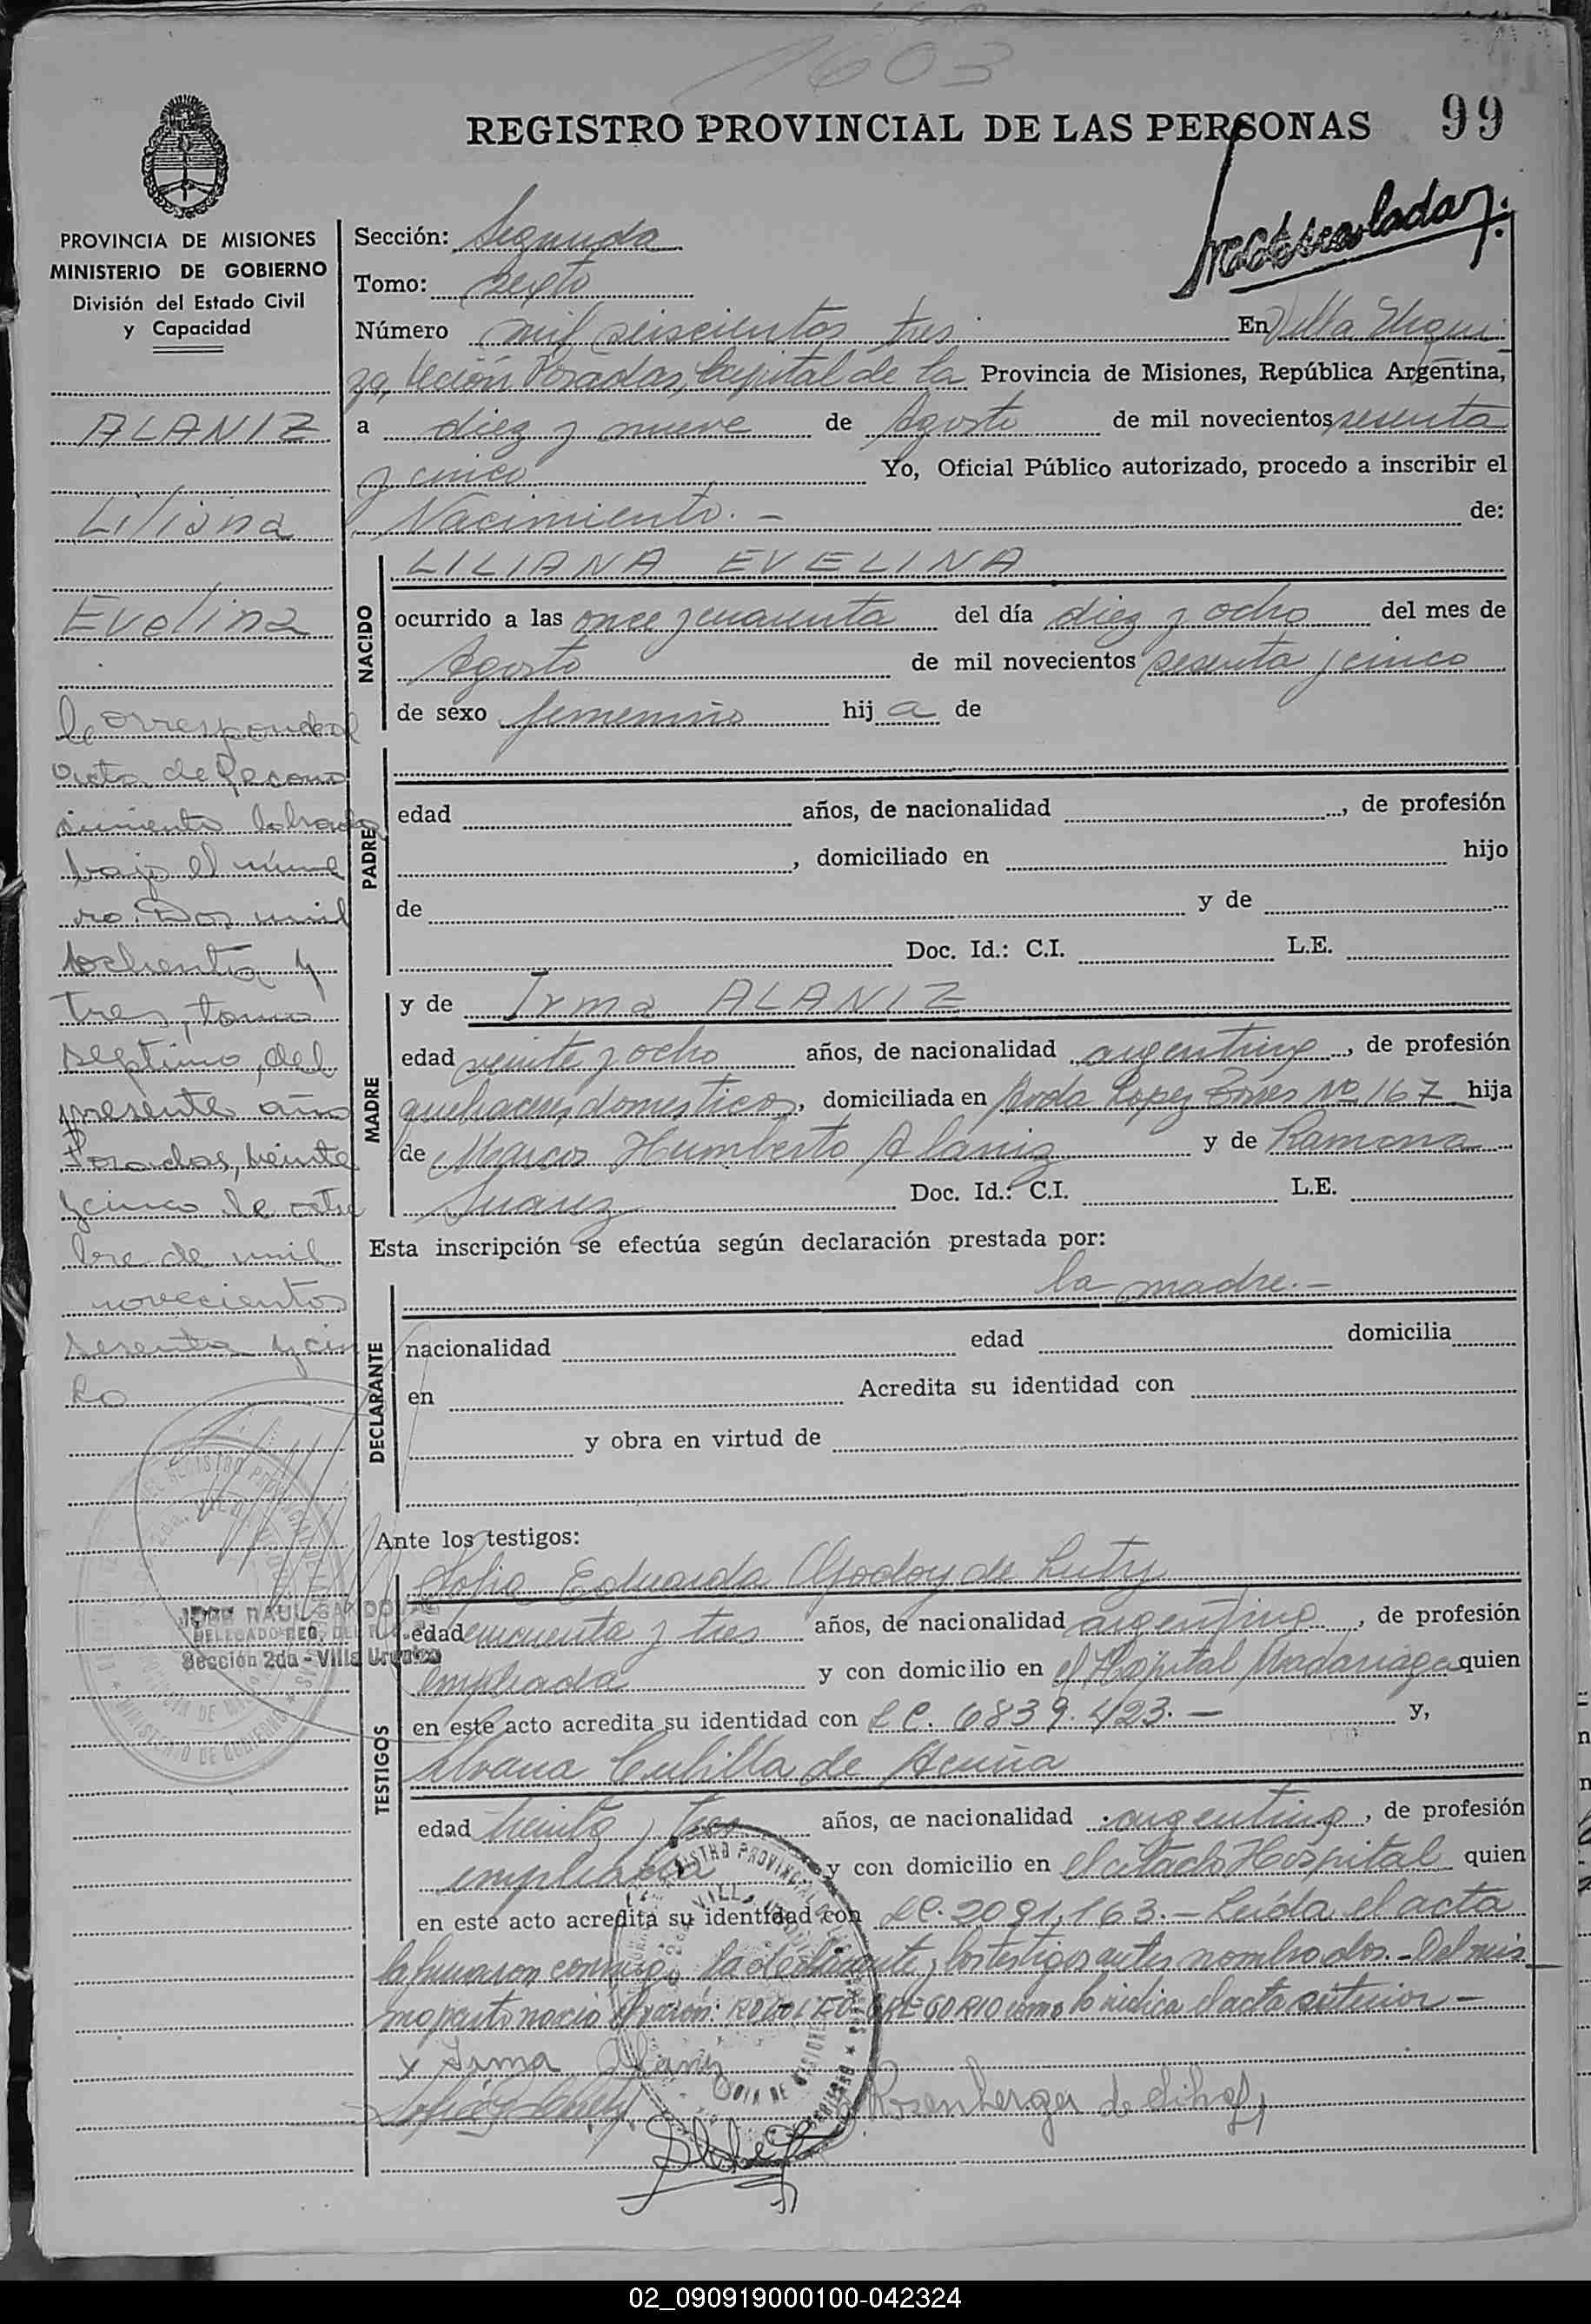 1603
REGISTRO PROVINCIAL DE LAS PERSONAS 99
PROVINCIA DE MISIONES
MINISTERIO DE GOBIERNO
División del Estado Civil
y Capacidad
ALANIZ
Liliana
Evelina
Corresponde al
acta de Recono
cimiento labrada
bajo el núme
ro Dos mil
ochenta y
tres, tomo
septimo, del
presente año
Posadas, veinte
y cinco de octu
bre de mil
novecientos
sesenta y cin
co
Sección 2da - Villa Urquiza
Sección: Segunda
Tomo: sexto
Número mil seiscientos tres En Villa Urqui
za, Sección Posadas, Capital de la Provincia de Misiones, República Argentina,
a diez y nueve de Agosto de mil novecientos sesenta
y cinco Yo, Oficial Público autorizado, procedo a inscribir el
Nacimiento.- de:
NACIDO
LILIANA EVELINA
ocurrido a las once y cuarenta del día diez y ocho del mes de
Agosto de mil novecientos sesenta y cinco
de sexo femenino hija de
PADRE
edad años, de nacionalidad , de profesión
, domiciliado en hijo
de y de
Doc. Id.: C.I. L.E.
MADRE
y de Irma ALANIZ
edad veinte y ocho años, de nacionalidad argentina, de profesión
quehaceres domesticos, domiciliada en Avda Lopez Torres Nº 167 hija
de Marcos Humberto Alaniz y de Ramona
Suarez Doc. Id.: C.I. L.E.
Esta inscripción se efectúa según declaración prestada por:
la madre.-
DECLARANTE
nacionalidad edad domicilia
en Acredita su identidad con
y obra en virtud de
Ante los testigos:
TESTIGOS
Sofia Eduarda Godoy de Luty
edad cincuenta y tres años, de nacionalidad argentina, de profesión
empleada y con domicilio en el Hospital Madariaga quien
en este acto acredita su identidad con L.C. 6839.423.- y,
Cubilla de Acuña
edad treinta y tres años, de nacionalidad argentina, de profesión
empleada y con domicilio en el citado Hospital quien
en este acto acredita su identidad con LC. 2091,163.- Leída el acta
la firmaron conmigo la declarante y los testigos antes nombrados.- Del mis
mo parto nacio el varón: GREGORIO como lo indica el acta anterior-
x Irma Alaniz
Rosenberger de
02_090919000100-042324